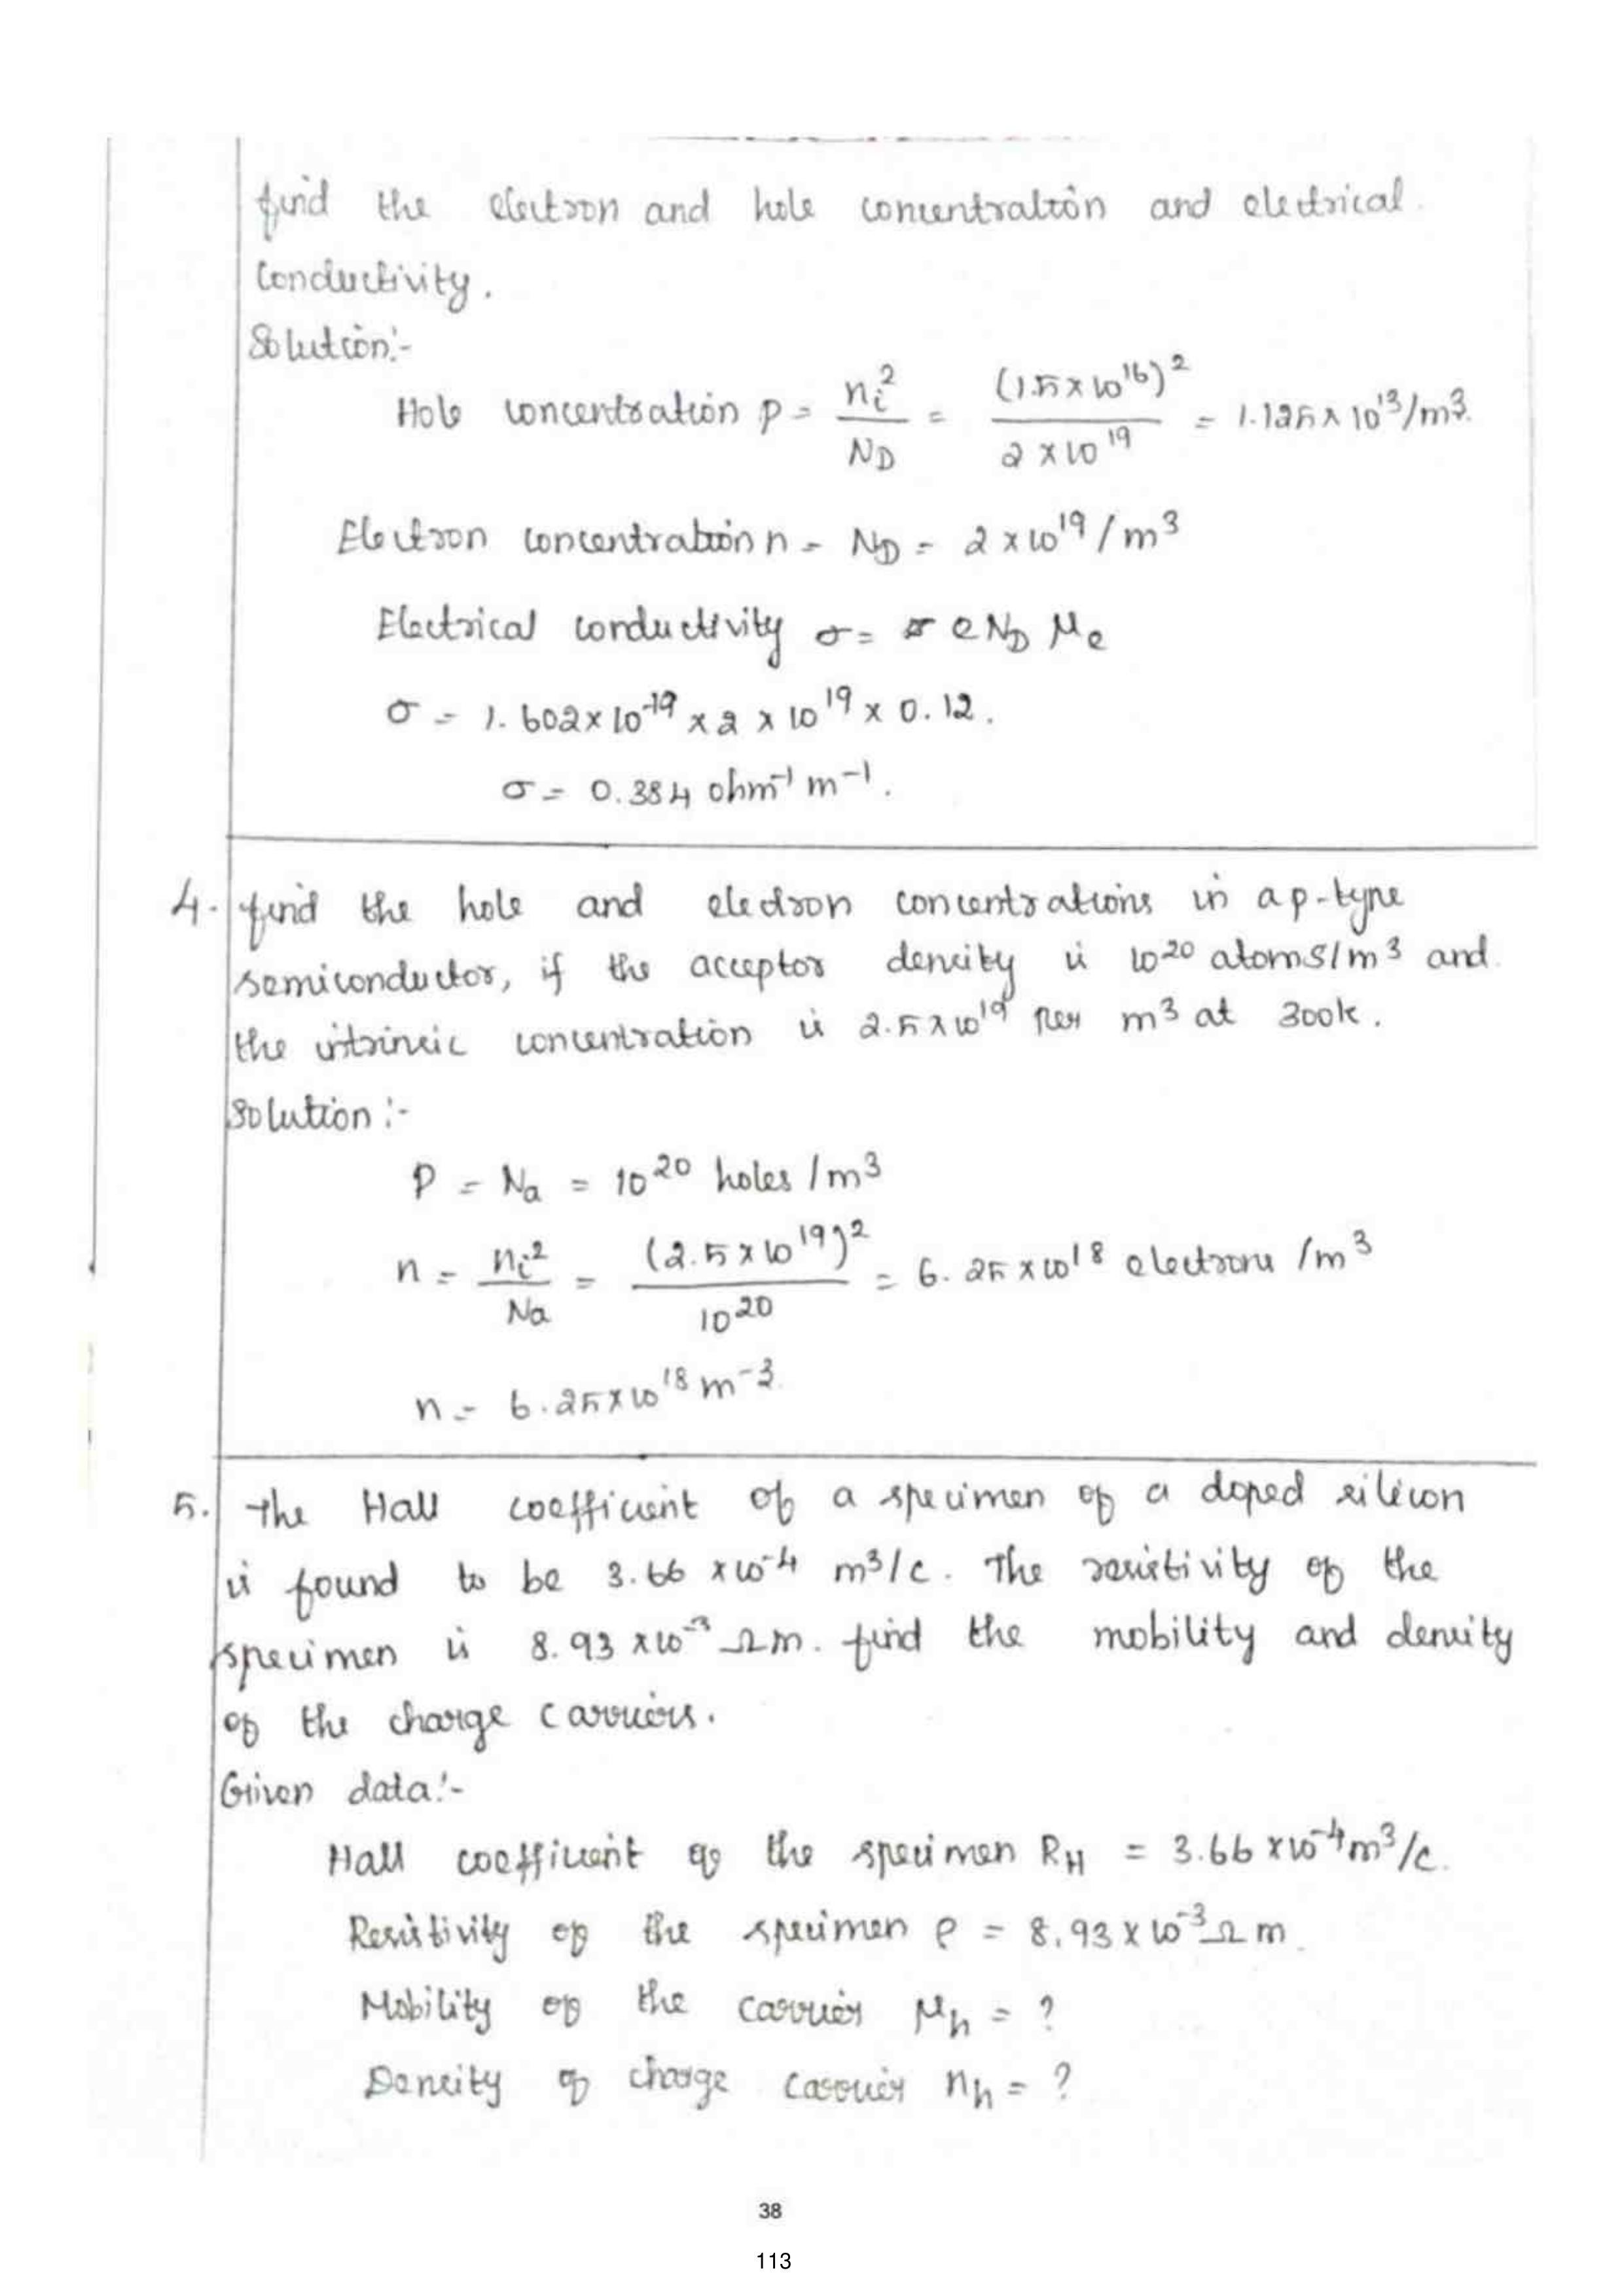 find the electron and hole concentration and electrical
conductivity.
Solution:-
Hole concentration p = ni² / ND = (1.5 x 10¹⁶)² / 2 x 10¹⁹ = 1.125 x 10¹³/m³.
Electron concentration n = ND = 2 x 10¹⁹ / m³
Electrical conductivity σ = e ND μe
σ = 1.602 x 10⁻¹⁹ x 2 x 10¹⁹ x 0.12.
σ = 0.384 ohm⁻¹ m⁻¹.
4. find the hole and electron concentrations in a p-type
semiconductor, if the acceptor density is 10²⁰ atoms/m³ and
the intrinsic concentration is 2.5 x 10¹⁹ per m³ at 300k.
Solution :-
P = Na = 10²⁰ holes /m³
n = ni² / Na = (2.5 x 10¹⁹)² / 10²⁰ = 6.25 x 10¹⁸ electrons /m³
n = 6.25 x 10¹⁸ m⁻³.
5. The Hall coefficient of a specimen of a doped silicon
is found to be 3.66 x 10⁻⁴ m³/c. The resistivity of the
specimen is 8.93 x 10⁻³ Ωm. find the mobility and density
of the charge carriers.
Given data:-
Hall coefficient of the specimen RH = 3.66 x 10⁻⁴ m³/c.
Resistivity of the specimen ρ = 8.93 x 10⁻³ Ω m.
Mobility of the carrier μh = ?
Density of charge carrier nh = ?
38
113